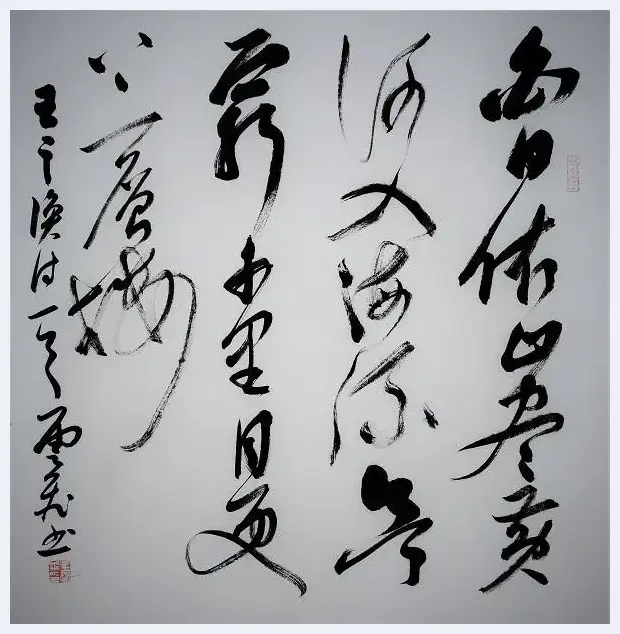 白日依山尽黄
河入海流欲
窮千里目更
上一層樓
王之涣诗一首 书